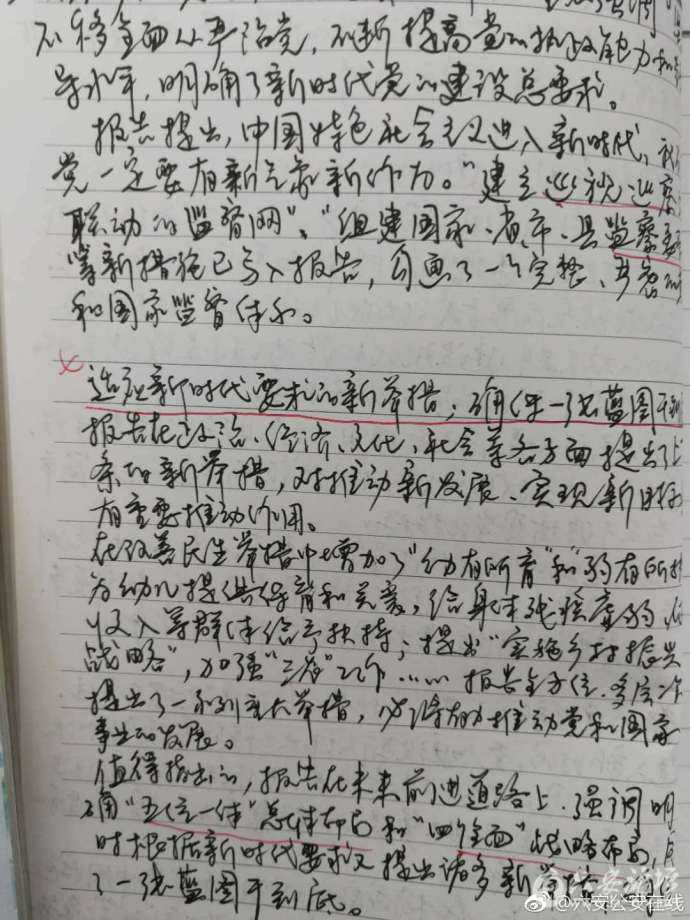 不移全面从严治党，不断提高党的执政能力和
导水平，明确了新时代党的建设总要求。
报告提出，中国特色社会主义进入新时代，我
党一定要有新气象新作为。"建立巡视巡察
联动的监督网"、"组建国家、省、市、县监察委
等新措施已写入报告，勾画了一个完整、
和国家监督体系。
适应新时代要求的新举措，确保一张蓝图干到
报告在政治、经济、文化、社会等各方面提出了上
条的新举措，对推动新发展、实现新目标
有重要推动作用。
在改善民生举措中增加了"幼有所育"和"弱有所扶
为幼儿提供保育和关爱，给身体残疾虚弱、低
收入等群体给予扶持；提出"实施乡村振兴
战略"，加强"三农"工作……报告全方位、多层次
提出了一系列重大举措，必将有力推动党和国家
事业的发展。
值得指出的，报告在未来前进道路上，强调明
确"五位一体"总体布局和"四个全面"战略布局，
时根据新时代要求又提出诸多新举措，
了一张蓝图干到底。
@六安公安在线